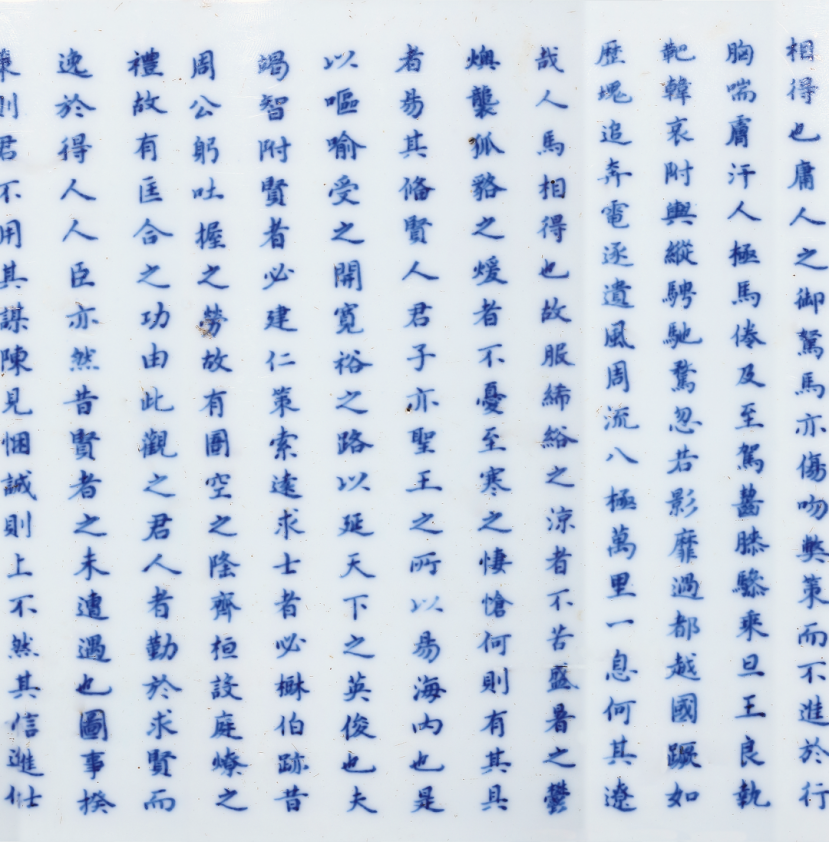 相得也庸人之御駑馬亦傷吻獘策而不進於行
胸喘膚汗人極馬倦及至駕齧膝驂乘旦王良執
靶韓哀附輿縱騁馳騖忽若影靡過都越國蹶如
歷塊追奔電逐遺風周流八極萬里一息何其遼
哉人馬相得也故服絺綌之涼者不苦盛暑之鬱
燠襲狐貉之煖者不憂至寒之悽愴何則有其具
者易其俻賢人君子亦聖王之所以易海內也是
以嘔喻受之開寬裕之路以延天下之英俊也夫
竭智附賢者必建仁策索遠求士者必樹伯跡昔
周公躬吐握之勞故有圉空之隆齊桓設庭燎之
禮故有匡合之功由此觀之君人者勤於求賢而
逸於得人人臣亦然昔賢者之未遭遇也圖事揆
策則君不用其謀陳見悃誠則上不然其信進仕